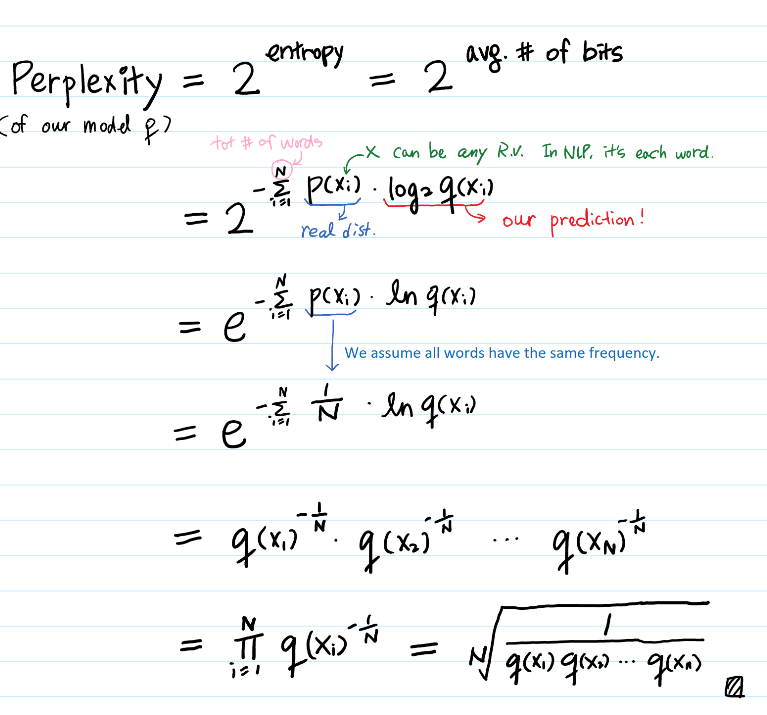 Perplexity = 2^entropy = 2^avg. # of bits
(of our model q)
tot # of words
x can be any R.V. In NLP, it's each word.
= 2^{-∑_{i=1}^{N} p(x_i) · log_2 q(x_i)}
real dist.
our prediction!
= e^{-∑_{i=1}^{N} p(x_i) · ln q(x_i)}
We assume all words have the same frequency.
= e^{-∑_{i=1}^{N} 1/N · ln q(x_i)}
= q(x_1)^{-1/N} · q(x_2)^{-1/N} ··· q(x_N)^{-1/N}
= ∏_{i=1}^{N} q(x_i)^{-1/N} = ᴺ√(1 / (q(x_1) q(x_2) ··· q(x_n)))